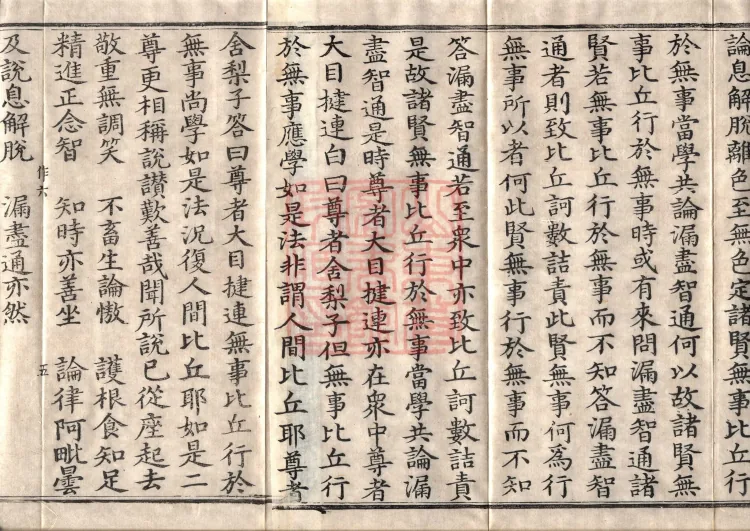 論息解脫離色至無色定諸賢無事比丘行
於無事當學共論漏盡智通何以故諸賢無
事比丘行於無事時或有來問漏盡智通諸
賢若無事比丘行於無事而不知答漏盡智
通者則致比丘訶數詰責此賢無事何為行
無事所以者何此賢無事行於無事而不知
答漏盡智通若至眾中亦致比丘訶數詰責
是故諸賢無事比丘行於無事當學共論漏
盡智通是時尊者大目揵連亦在眾中尊者
大目揵連白曰尊者舍梨子但無事比丘行
於無事應學如是法非謂人間比丘耶尊者
舍梨子答曰尊者大目揵連無事比丘行於
無事尚學如是法況復人間比丘耶如是二
尊更相稱說讚歎善哉聞所說已從座起去
敬重無調笑 不畜生論慠 護根食知足
精進正念智 知時亦善坐 論律阿毗曇
作六 五
及說息解脫 漏盡通亦然